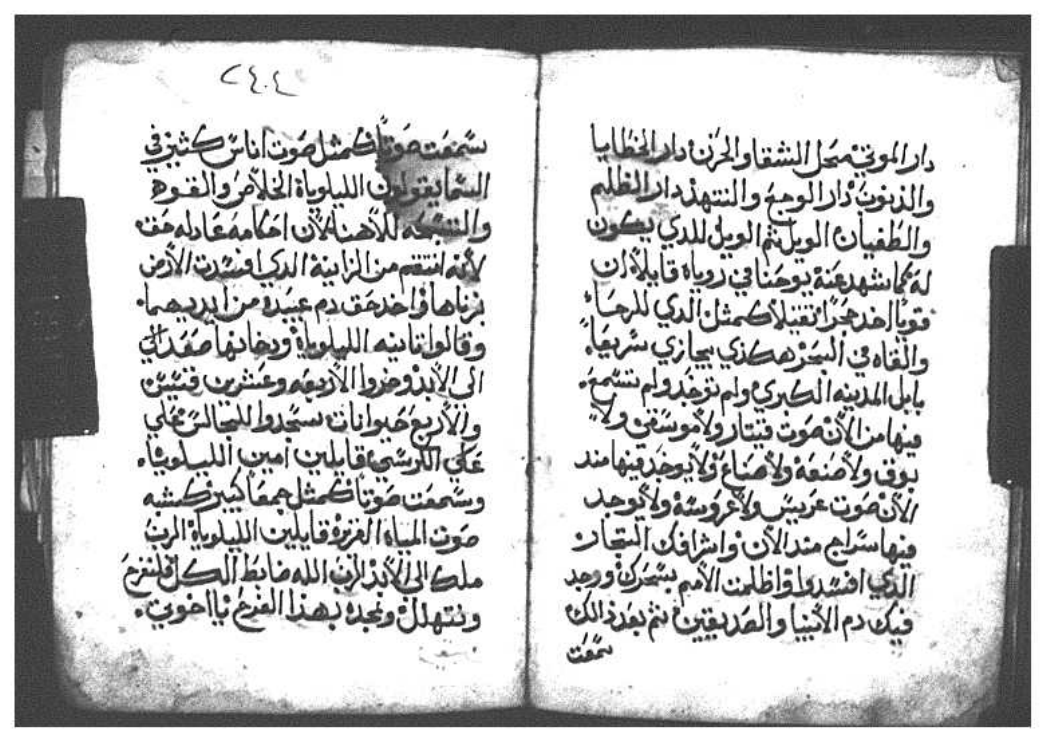 دار الموتي محل الشقا والحزن دار الخطايا
والذنوب دار الوجع والتنهد دار الظلم
والطغيان الويل ثم الويل للدي يكون
له كما شهد عنه يوحنا في روياه قايلا ان
قويا اخد حجرا تقيلا كمثل الدي للرحا
والقاه في البحر هكدي يجازي سريعا
بابل المدينه الكبري ولم توجد ولم تسمع
فيها من الان صوت قيتار ولا موسقي ولا
بوق ولا صنعه ولا صناع ولا يوجد فيها مند
الان صوت عريس ولا عروسه ولا يوجد
فيها سراج مند الان واشرافك التجار
الدي افسدوا واظلمت الامم بسحرك ووجد
فيك دم الانبيا والصديقين ثم بعد دالك
سمعت
٢٤٠٤
سمعت صوتا كمثل صوت اناس كثيره في
السما يقولون الليلوياه الخلاص والقوه
والتسبحه للاهنا لان احكامه عادله حق
لانه انتقم من الزانيه الدي افسدت الارض
بزناها واخد حق دم عبيده من ايديهما
وقالوا تانيه الليلوياه ودخانها صعد الي
الي الابد وخروا الاربعه وعشرين قسيس
والاربع حيوانات سجدوا للجالس علي
علي الكرسي قايلين امين الليلويا
وسمعت صوتا كمثل جمعا كبير كشبه
صوت المياه الغزيره قايلين الليلوياه الرب
ملك الي الابد الرب الله ضابط الكل فلنفرح
ونتهلل ونمجده بهذا الفرح يا اخوتي